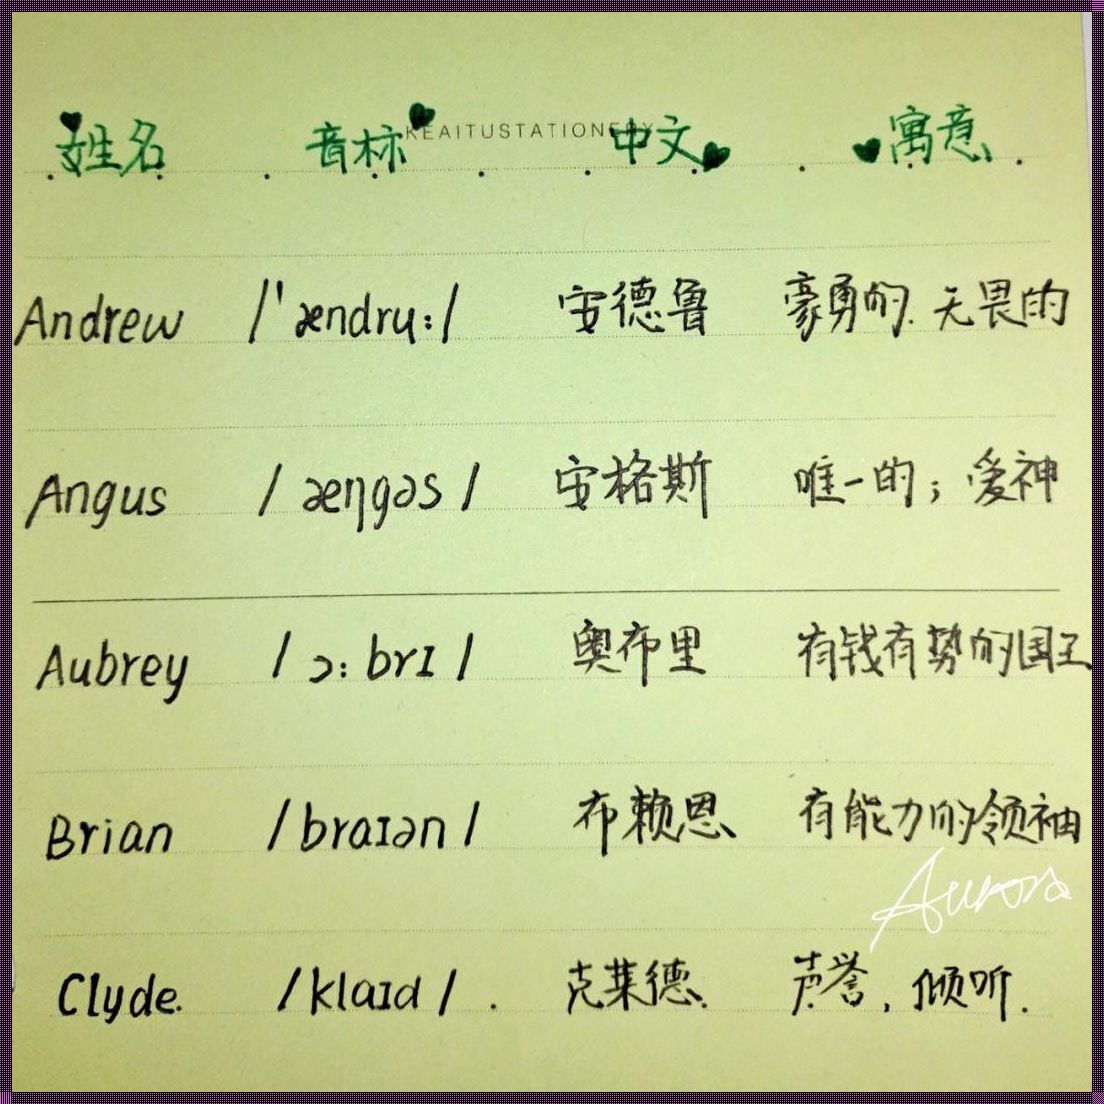 KEAITUSTATIONERY
姓名 音标 中文 寓意
Andrew /'ændru:/ 安德鲁 豪勇的.无畏的
Angus /æŋgəs/ 安格斯 唯一的；爱神
Aubrey /ɔ:brɪ/ 奥布里 有钱有势的国王
Brian /braɪən/ 布赖恩 有能力的领袖
Aurora
Clyde. /klaɪd/. 克莱德. 声誉,倾听.